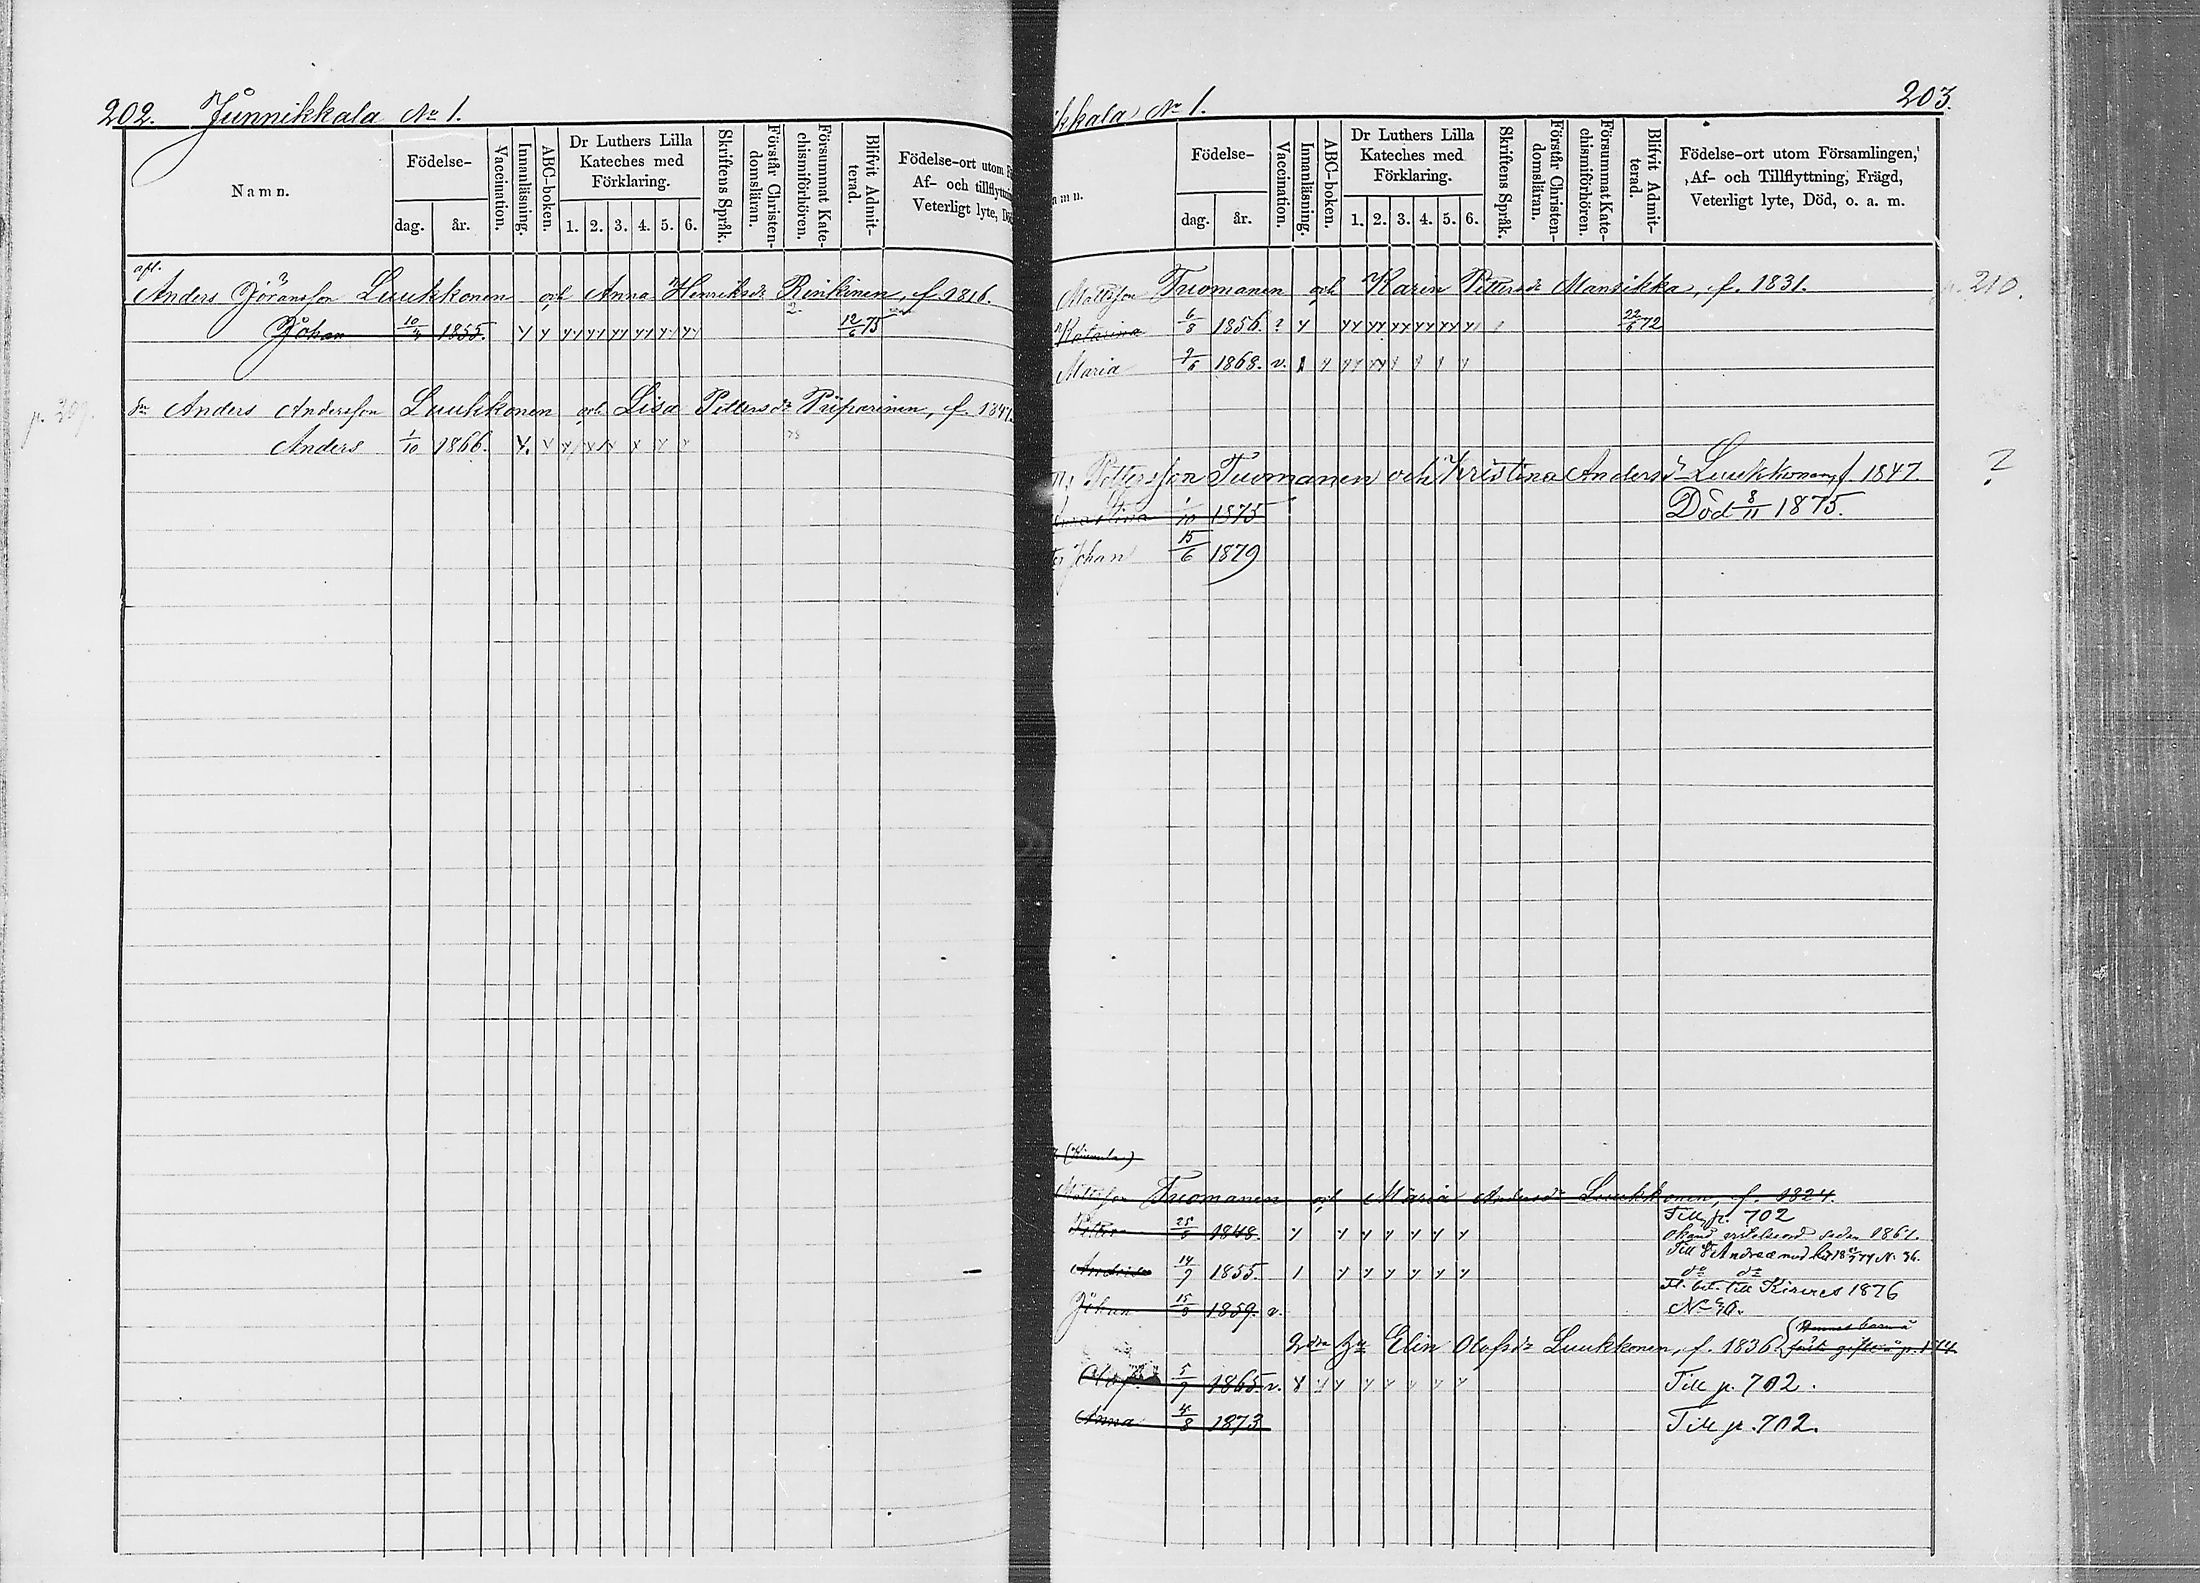 202. Junnikkala No 1.
Namn.
Födelse-
dag. år.
Vaccination.
Innanläsning.
ABC-boken.
Dr Luthers Lilla Kateches med Förklaring.
1. 2. 3. 4. 5. 6.
Skriftens Språk.
Förstår Christen-domsläran.
Försummat Kate-chismiförhören.
Blifvit Admit-terad.
Födelse-ort utom
Af- och tillflyttn
Veterligt lyte, Död
afl.
Anders Jöransson Luukkonen och Anna Henriksdr Rinkinen, f. 1816.
Johan 10/4 1855. 2. 12/6 75
p. 209. Anders Andersson Luukkonen och Lisa Pettersdr Piiparinen, f. 1847.
Anders 1/10 1866. 78
203.
kkala No 1.
amn.
Födelse-
dag. år.
Vaccination.
Innanläsning.
ABC-boken.
Dr Luthers Lilla Kateches med Förklaring.
1. 2. 3. 4. 5. 6.
Skriftens Språk.
Förstår Christen-domsläran.
Försummat Kate-chismiförhören.
Blifvit Admit-terad.
Födelse-ort utom Församlingen,
Af- och Tillflyttning, Frägd,
Veterligt lyte, Död, o. a. m.
Mattsson Tuomanen och Karin Pettersdr Mansikka, f. 1831. p. 210.
Katarina 6/8 1856. ? 22/6 72
Maria 9/6 1868. v.
Pettersson Tuomanen och Kristina Andersdr Luukkonen f. 1847. ?
Stina 1/10 1875 Död 8/11 1875.
Johan 15/6 1879
Mattsson Tuomanen och Maria Andersdr Luukkonen, f. 1824.
Till p. 702
Petter 25/5 1848.
Till St Andreæ med
Andreas 14/9 1855.
Fl. bet. till Kivires 1876
Johan 15/8 1859. v.
2dra hu Elin Olofsdr Luukkonen, f. 1836
Olof 5/9 1865 v. Till p. 702.
Anna 4/8 1873 Till p. 702.